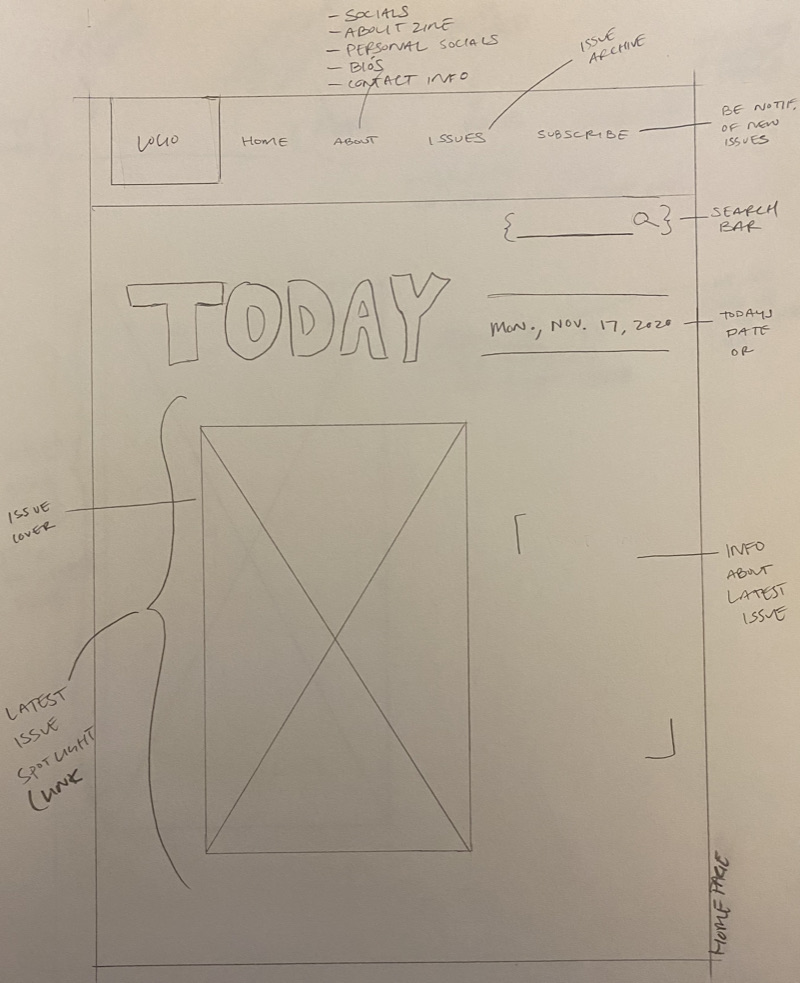 - SOCIALS
- ABOUT ZINE
- PERSONAL SOCIALS
- BIOS
- CONTACT INFO
ISSUE
ARCHIVE
LOGO
HOME
ABOUT
ISSUES
SUBSCRIBE
BE NOTIF.
OF NEW
ISSUES
SEARCH
BAR
TODAY
MON., NOV. 17, 2020
TODAYS
DATE
OR
ISSUE
COVER
INFO
ABOUT
LATEST
ISSUE
LATEST
ISSUE
SPOTLIGHT
LINK
HOME PAGE